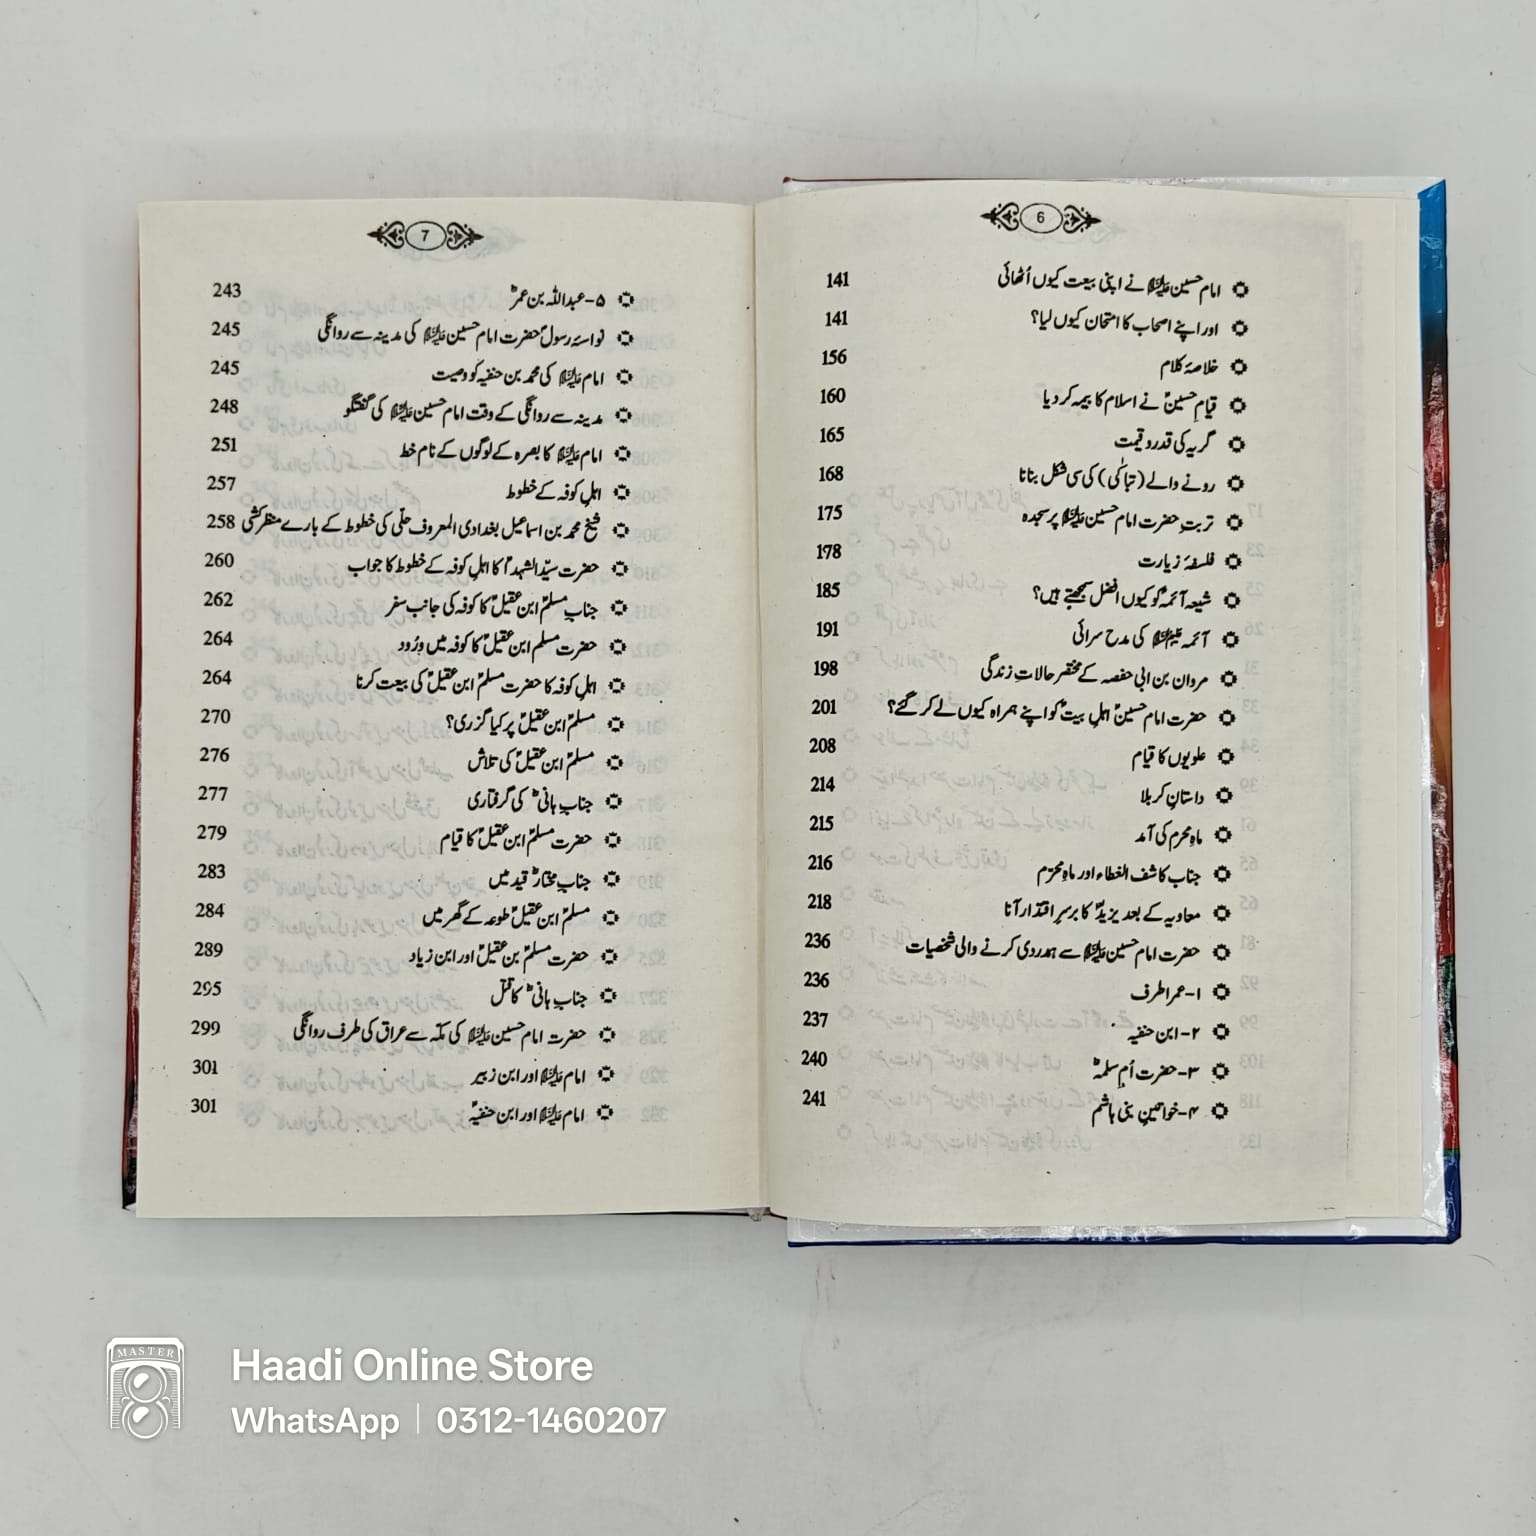 6
امام حسین علیہ السلام نے اپنی بیعت کیوں اُٹھائی 141
اور اپنے اصحاب کا امتحان کیوں لیا؟ 141
خلاصۂ کلام 156
قیامِ حسینؑ نے اسلام کا بیمہ کر دیا 160
گریہ کی قدر و قیمت 165
رونے والے (تباکٰی) کی سی شکل بنانا 168
تربتِ حضرت امام حسین علیہ السلام پر سجدہ 175
فلسفۂ زیارت 178
شیعہ آئمہؑ کو کیوں افضل سمجھتے ہیں؟ 185
آئمہ علیہم السلام کی مدح سرائی 191
مروان بن ابی حفصہ کے مختصر حالاتِ زندگی 198
حضرت امام حسینؑ اہلِ بیتؑ کو اپنے ہمراہ کیوں لے کر گئے؟ 201
علویوں کا قیام 208
داستانِ کربلا 214
ماہِ محرم کی آمد 215
جناب کاشف الغطاء اور ماہِ محرّم 216
معاویہ کے بعد یزید کا برسرِ اقتدار آنا 218
حضرت امام حسین علیہ السلام سے ہمدردی کرنے والی شخصیات 236
۱- عمر اطرف 236
۲- ابن حنفیہ 237
۳- حضرت اُمِ سلمہؓ 240
۴- خواتینِ بنی ہاشم 241
7
۵- عبداللہ بن عمرؓ 243
نواسۂ رسولؐ حضرت امام حسین علیہ السلام کی مدینہ سے روانگی 245
امام علیہ السلام کی محمد بن حنفیہ کو وصیت 245
مدینہ سے روانگی کے وقت امام حسین علیہ السلام کی گفتگو 248
امام علیہ السلام کا بصرہ کے لوگوں کے نام خط 251
اہلِ کوفہ کے خطوط 257
شیخ محمد بن اسماعیل بغدادی المعروف حلّی کی خطوط کے بارے منظرکشی 258
حضرت سیّدالشہداؑ کا اہلِ کوفہ کے خطوط کا جواب 260
جناب مسلمؑ ابن عقیلؑ کا کوفہ کی جانب سفر 262
حضرت مسلم ابن عقیلؑ کا کوفہ میں ورُود 264
اہلِ کوفہ کا حضرت مسلمؑ ابن عقیلؑ کی بیعت کرنا 264
مسلمؑ ابن عقیلؑ پر کیا گزری؟ 270
مسلمؑ ابن عقیلؑ کی تلاش 276
جنابِ ہانیؓ کی گرفتاری 277
حضرت مسلمؑ ابن عقیلؑ کا قیام 279
جناب مختارؓ قید میں 283
مسلمؑ ابن عقیلؑ طوعہ کے گھر میں 284
حضرت مسلمؑ بن عقیلؑ اور ابن زیاد 289
جنابِ ہانیؓ کا قتل 295
حضرت امام حسین علیہ السلام کی مکّہ سے عراق کی طرف روانگی 299
امام علیہ السلام اور ابن زبیر 301
امام علیہ السلام اور ابن حنفیہؑ 301
MASTER
Haadi Online Store
WhatsApp | 0312-1460207